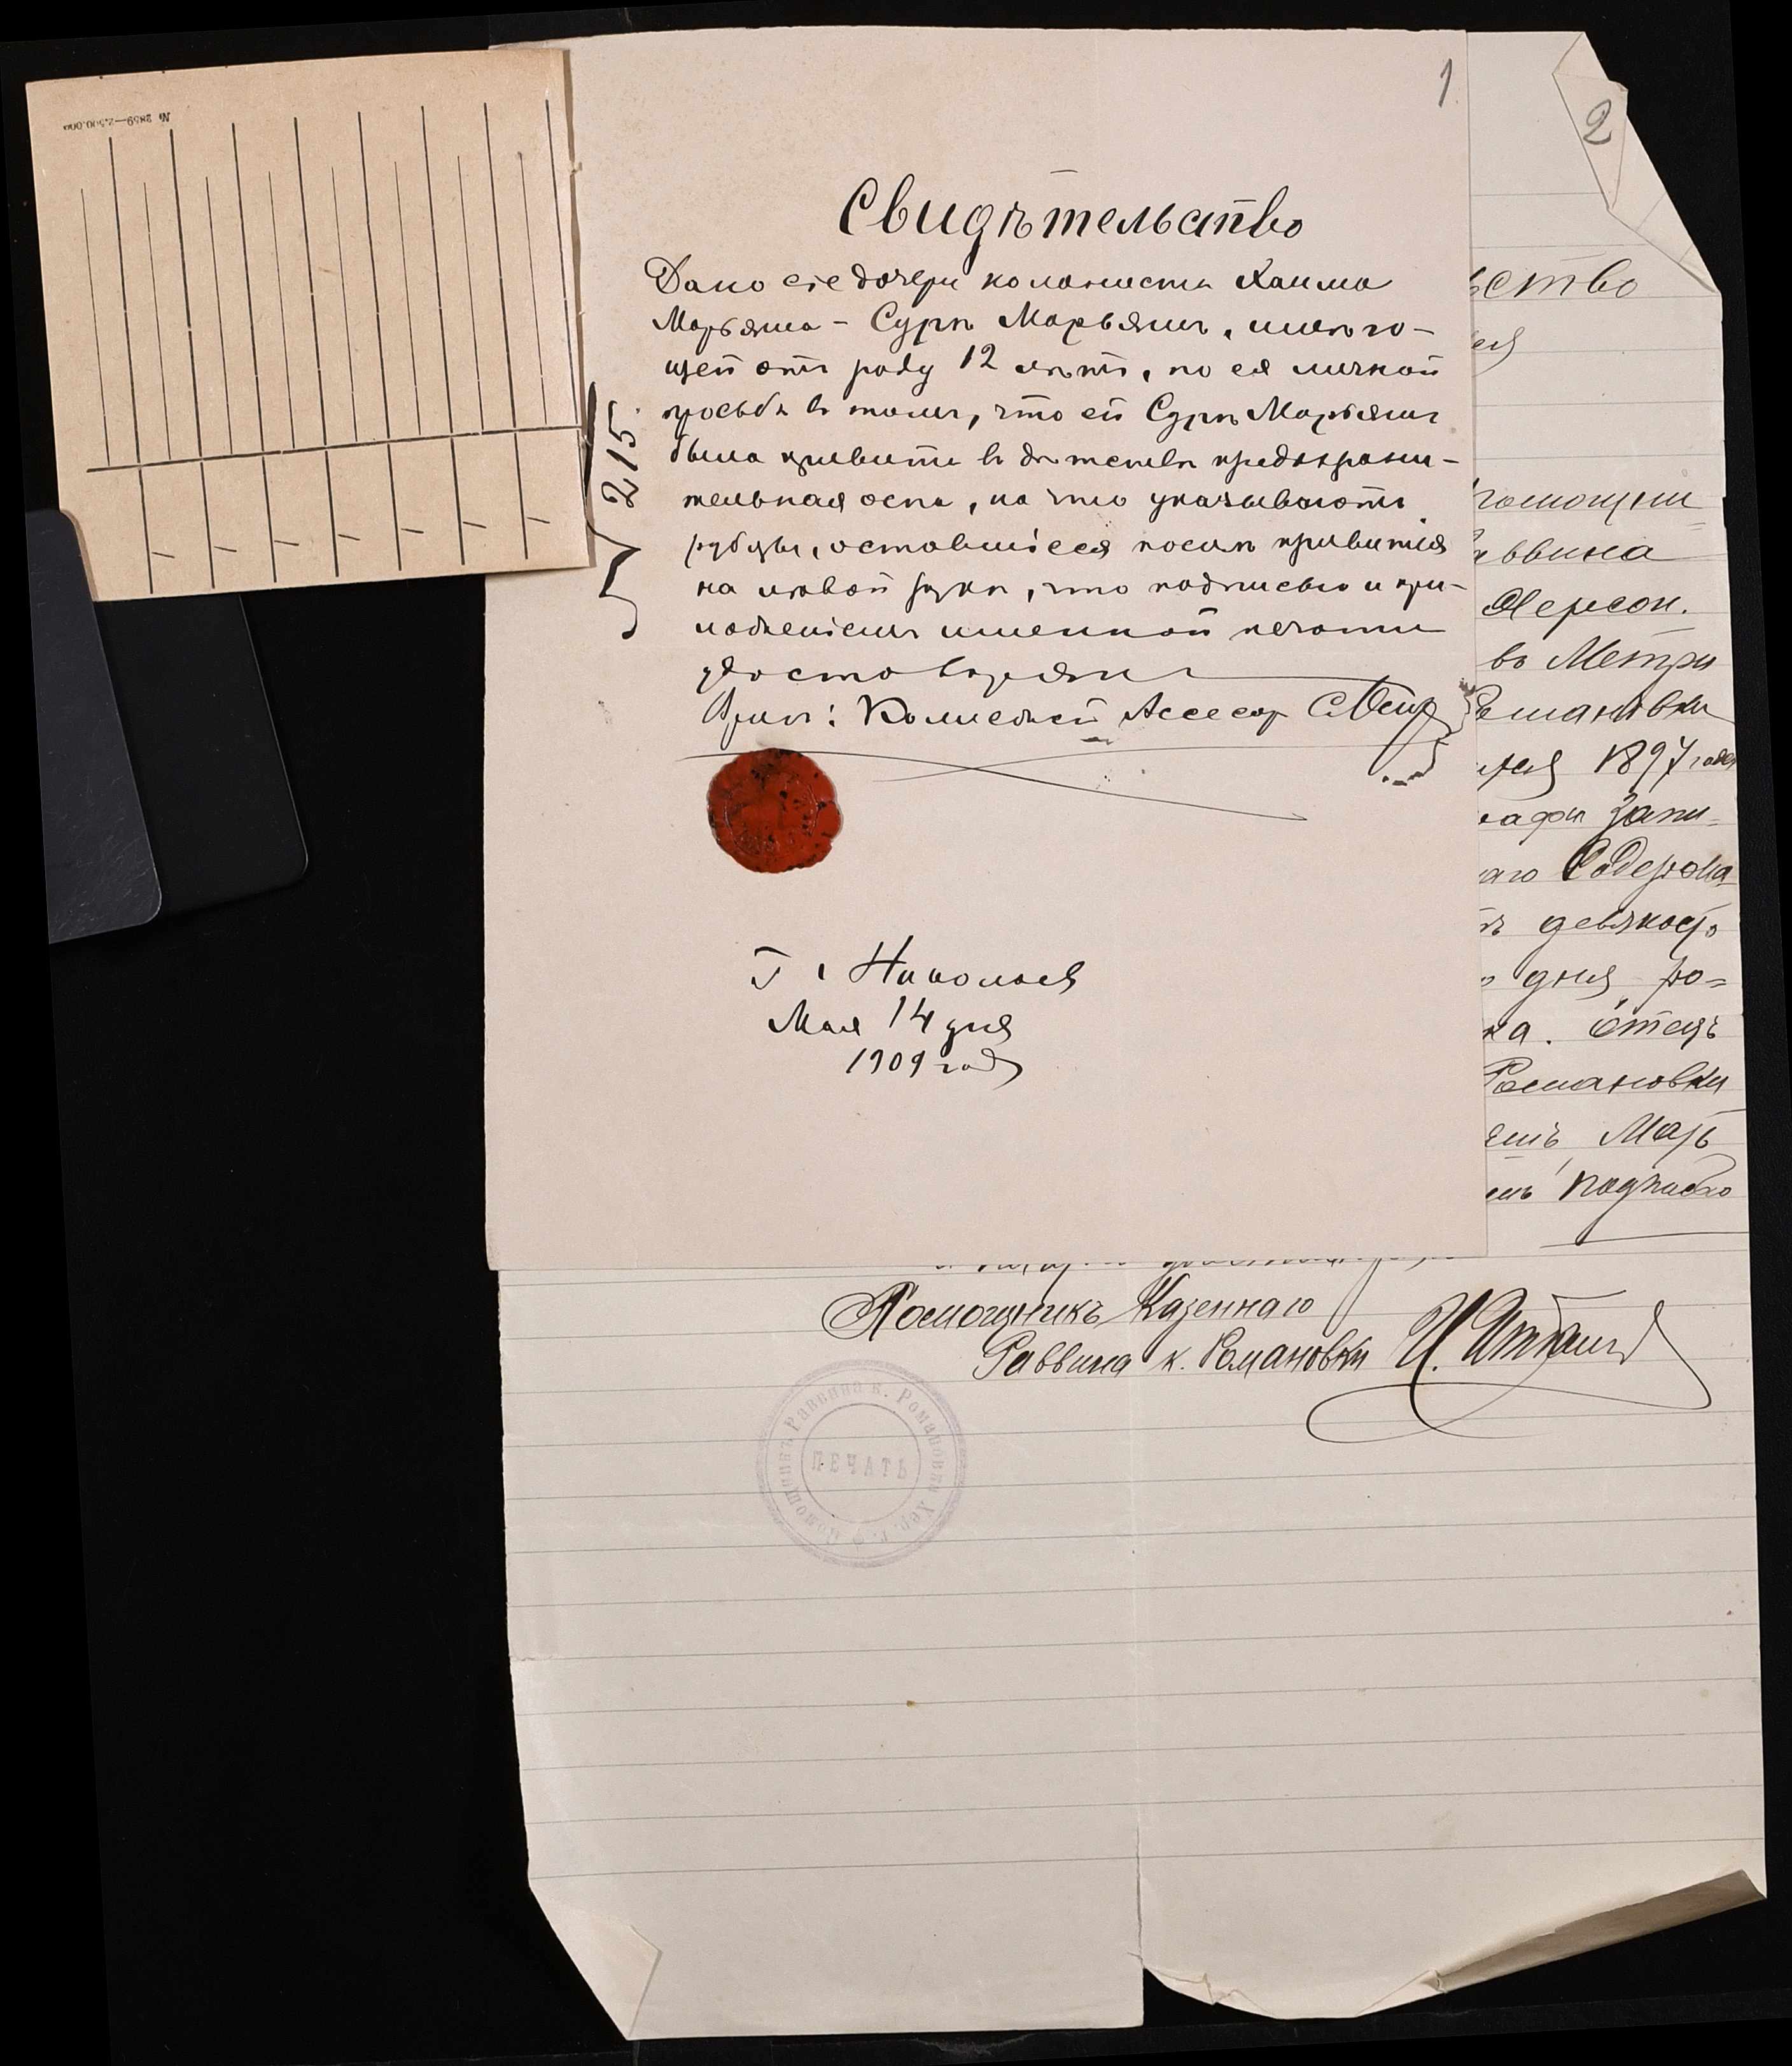 № 2859—2.500.000
1
Свидѣтельство
Дано сіе дочери колониста Хаима
Марьяша - Сурѣ Марьяшъ, имѣю-
щей отъ роду 12 лѣтъ, по ея личной
просьбѣ въ томъ, что ей Сурѣ Марьяшъ
была привита въ дѣтствѣ предохрани-
тельная оспа, на что указываютъ
рубцы, оставшіеся послѣ привитія
на лѣвой рукѣ, что подписью и при-
ложеніемъ именной печати
удостовѣряю
Врачъ: Коллежскій Ассесоръ
215
Г. Николаевъ
Мая 14 дня
1909 года
2
ьство
помощни
аввина
Херсон.
въ Метри
Романовки
1897 года
рафѣ Запи-
аго Содержа-
девяносто
дня ро-
ка. Отецъ
Романовки
ешъ Марь
подписью
Помощникъ Казеннаго
Раввина к. Романовки
Помощникъ Раввина к. Романовки Хер. г.
ПЕЧАТЬ